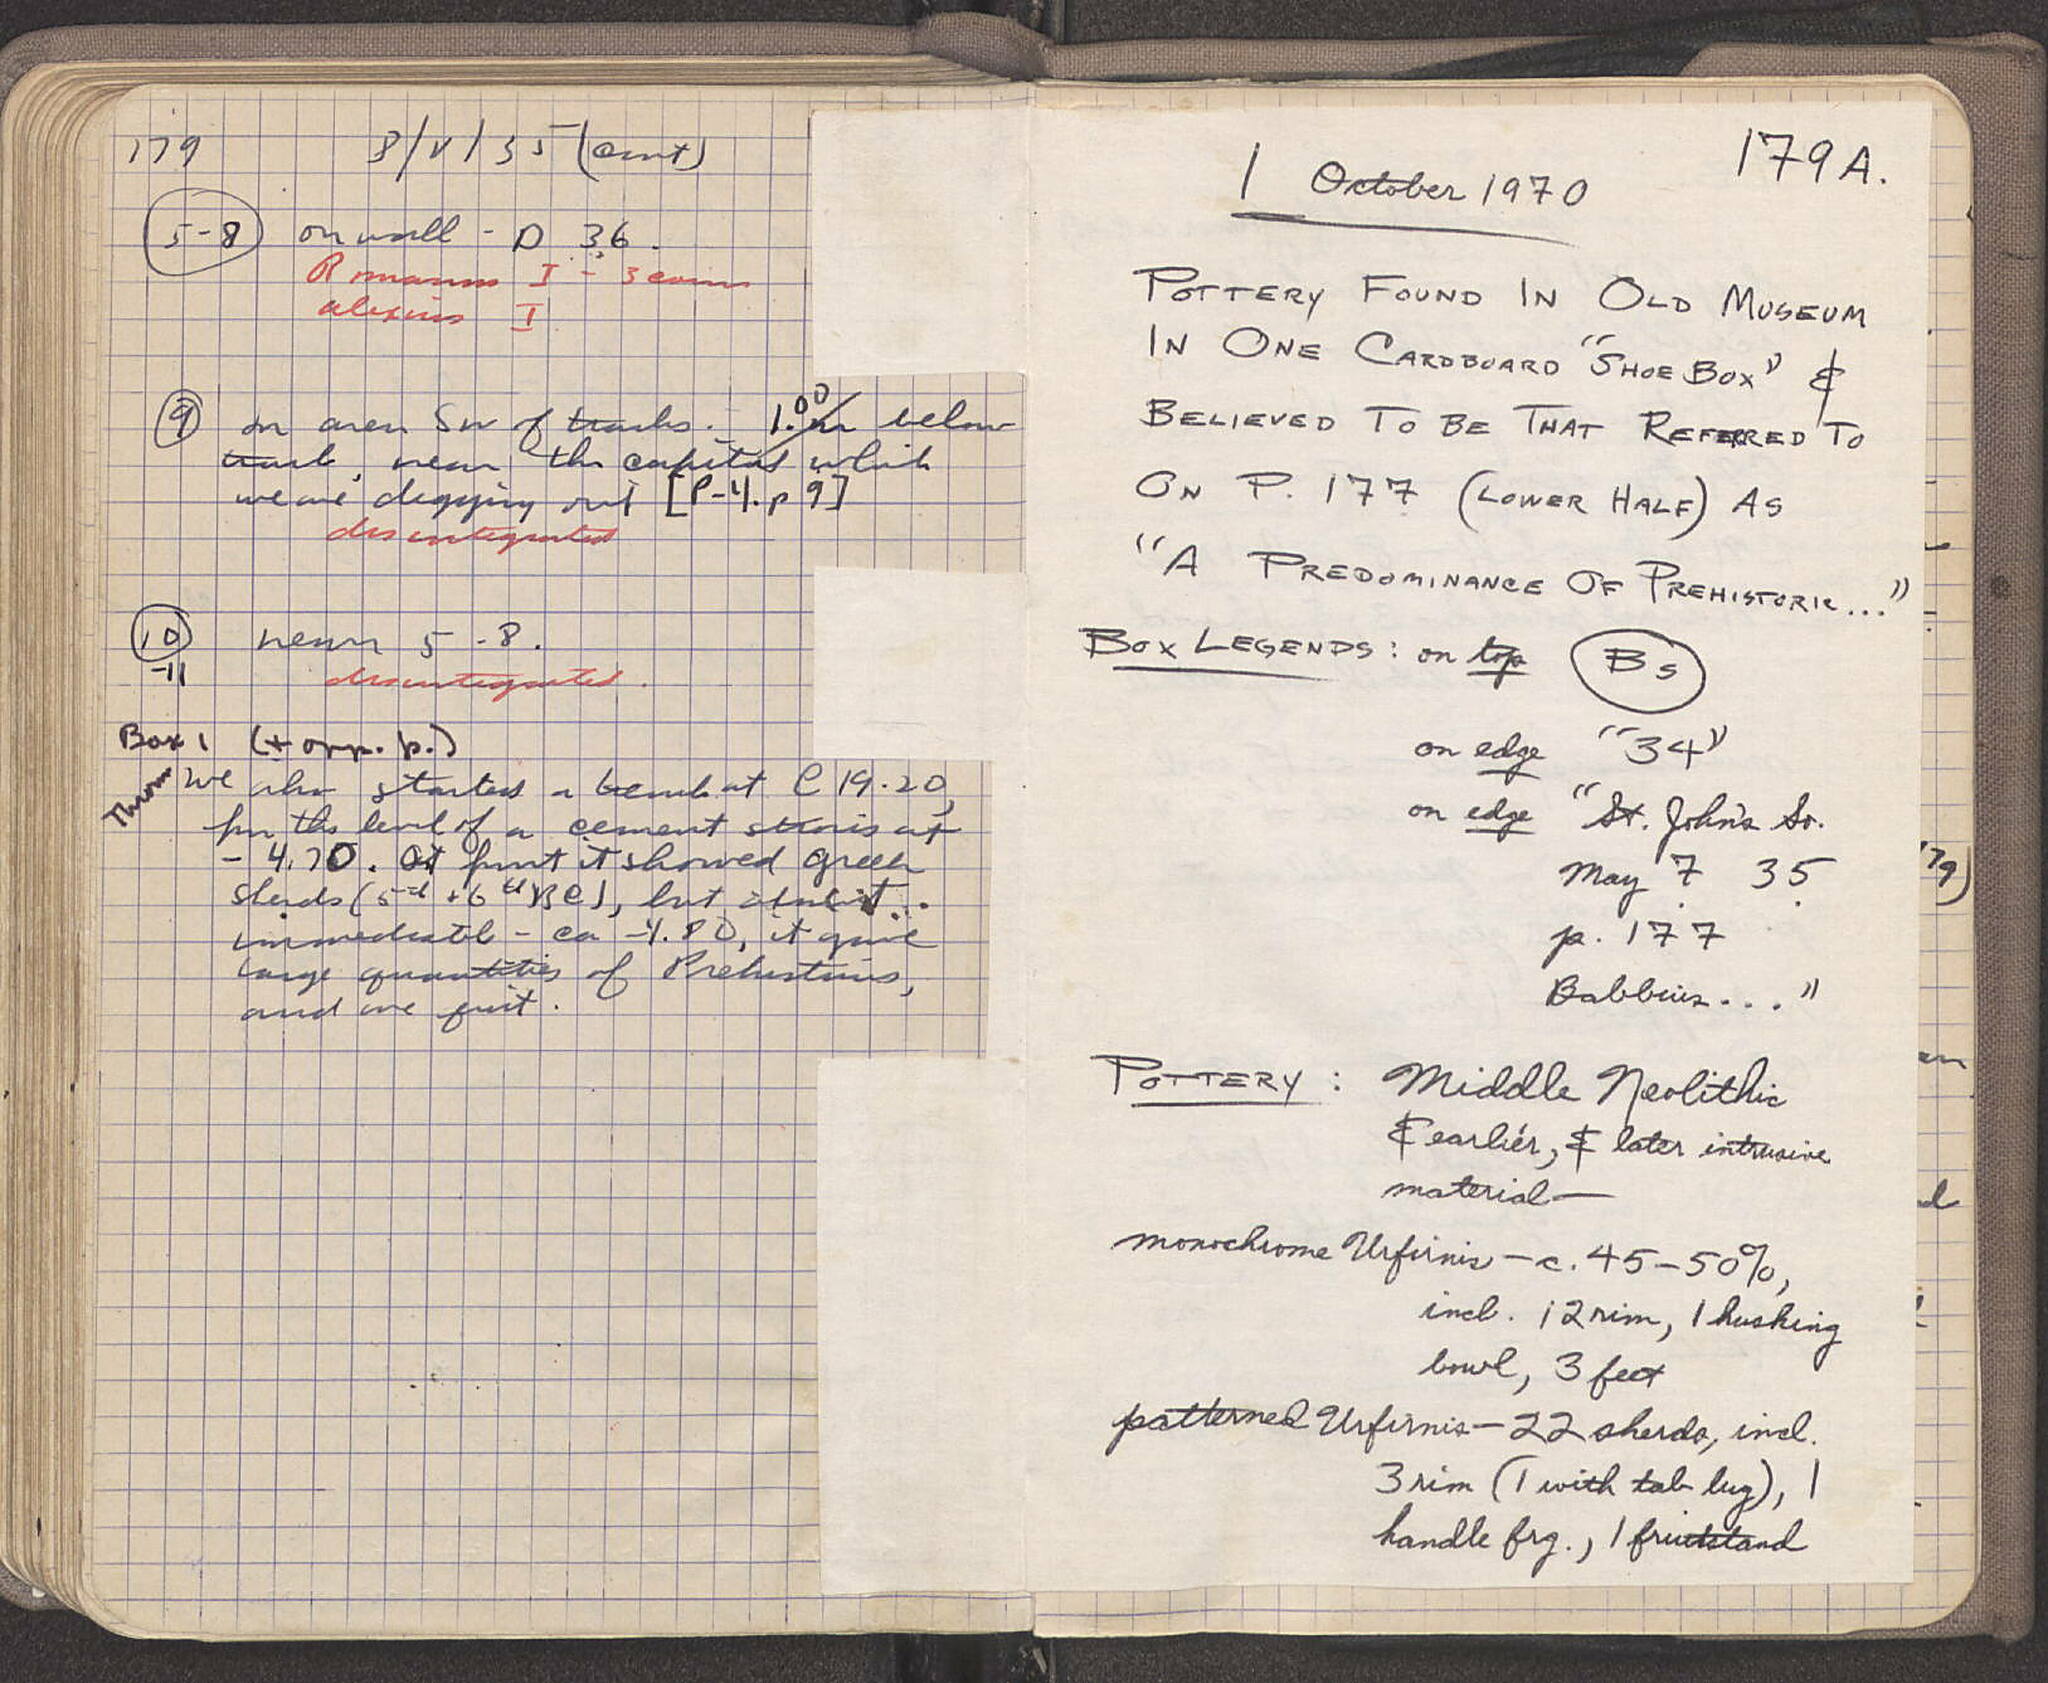 179 8/V/35 (cont)
5-8 on wall - D 36.
Romanus I - 3 coins
Alexius I
9 in area SW of tracks. 1.00 m below
track, near the capital which
we are digging out [P-4. p 9]
disintegrated
10 near 5-8.
-11
disintegrated.
Box 1 (+ opp. p.)
Thrown
We also started a trench at C 19.20,
for the level of a cement stosis at
- 4.70. At first it showed Greek
sherds (5th + 6th BC), but almost..
immediatel - ca -4.80, it gave
large quantities of Prehistoric,
and we quit.
179 A.
1 October 1970
POTTERY FOUND IN OLD MUSEUM
IN ONE CARDBOARD "SHOE BOX" &
BELIEVED TO BE THAT REFERRED TO
ON P. 177 (LOWER HALF) AS
"A PREDOMINANCE OF PREHISTORIC..."
BOX LEGENDS: on top Bs
on edge "34"
on edge "St. John's So.
May 7 35
p. 177
Babbius...."
POTTERY: Middle Neolithic
& earlier, & later intrusive
material—
monochrome Urfirnis — c. 45-50%,
incl. 12 rim, 1 husking
bowl, 3 feet
patterned Urfirnis — 22 sherds, incl.
3 rim (1 with tab lug), 1
handle frg., 1 fruitstand
179)